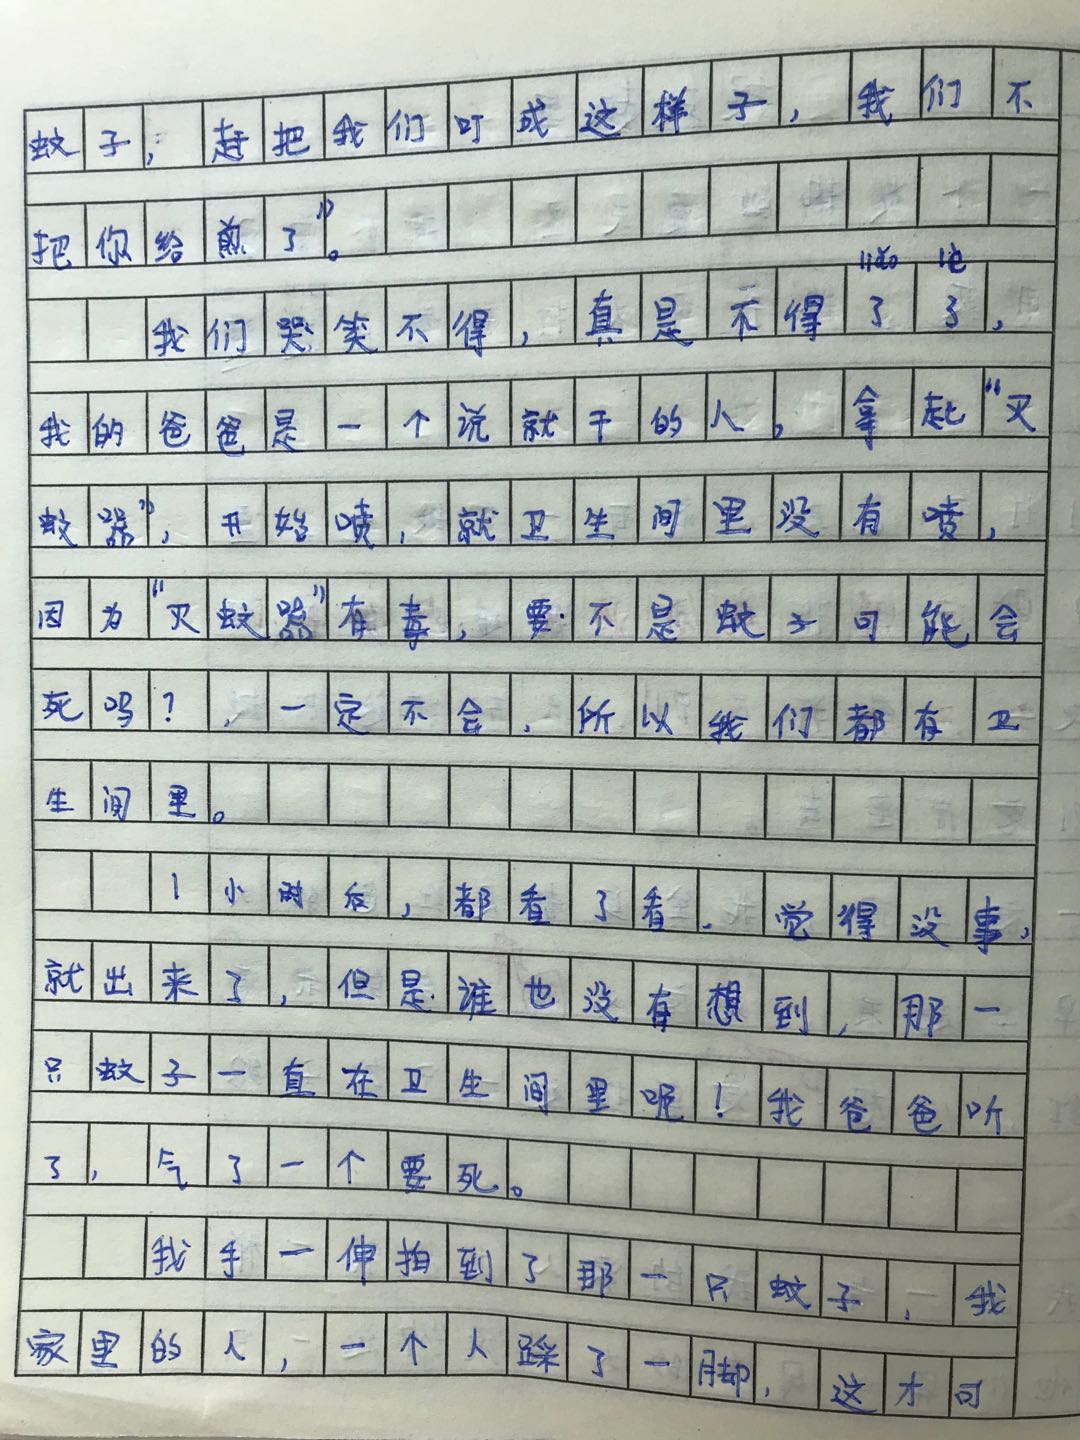 蚊子，赶把我们叮成这样子，我们不
把你给煎了”。
liǎo le
我们哭笑不得，真是不得了了，
我的爸爸是一个说就干的人，拿起“灭
蚊器”，开始喷，就卫生间里没有喷，
因为“灭蚊器”有毒，要不是蚊子可能会
死吗？，一定不会，所以我们都有卫
生间里。
1小时后，都看了看，觉得没事，
就出来了，但是谁也没有想到，那一
只蚊子一直在卫生间里呢！我爸爸听
了，气了一个要死。
我手一伸拍到了那一只蚊子，我
家里的人，一个人踩了一脚，这才可